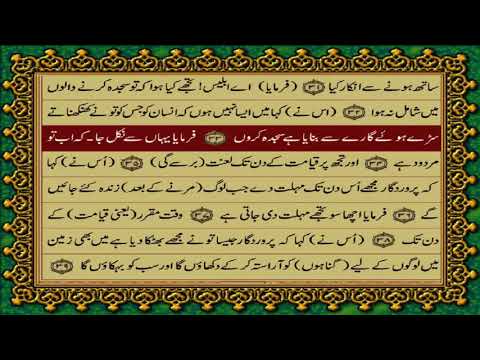 ساتھ ہونے سے انکار کیا ﴿۳۱﴾ (فرمایا) اے ابلیس! تجھے کیا ہوا کہ تو سجدہ کرنے والوں
میں شامل نہ ہوا ﴿۳۲﴾ (اس نے) کہا میں ایسا نہیں ہوں کہ انسان کو جس کو تونے کھنکھناتے
سڑے ہوئے گارے سے بنایا ہے سجدہ کروں ﴿۳۳﴾ فرمایا یہاں سے نکل جا۔ کہ اب تو
مردود ہے ﴿۳۴﴾ اور تجھ پر قیامت کے دن تک لعنت (برسے گی) ﴿۳۵﴾ (اُس نے) کہا
کہ پروردگار مجھے اُس دن تک مہلت دے جب لوگ (مرنے کے بعد) زندہ کئے جائیں
گے ﴿۳۶﴾ فرمایا اچھا سو تجھے مہلت دی جاتی ہے ﴿۳۷﴾ وقت مقرر (یعنی قیامت) کے
دن تک ﴿۳۸﴾ (اُس نے) کہا کہ پروردگار جیسا تونے مجھے بھٹکا دیا ہے میں بھی زمین
میں لوگوں کے لیے (گناہوں) کو آراستہ کر کے دکھاؤں گا اور سب کو بہکاؤں گا ﴿۳۹﴾